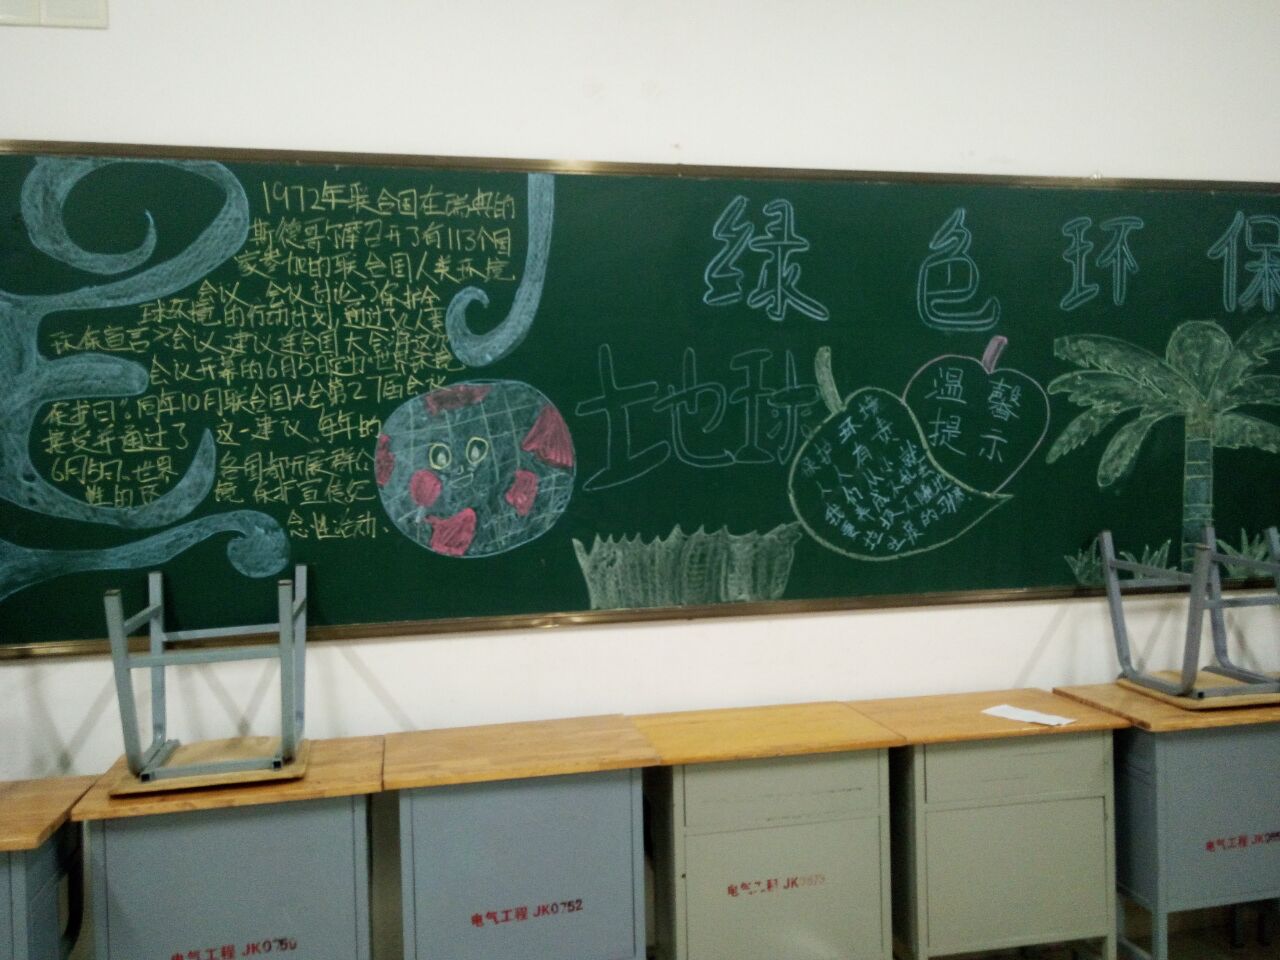 1972年联合国在瑞典的
斯德哥尔摩召开了有113个国
家参加的联合国人类环境
会议。会议讨论了保护全
球环境的行动计划,通过《人类
环保宣言》会议建议联合国大会将这次
会议开幕的6月5日定为"世界环境
保护日".同年10月联合国大会第27届会议
接受并通过了这一建议、每年的
6月5日、世界各国都开展群众
性的环境保护宣传纪
念性活动、
绿色环保
地球
温馨
提示
保护环境
人人有责
我们从小就
要养成不乱丢
垃圾
的习惯
电气工程 JK0752
电气工程 JK
电气工程 JK
电气工程 JK